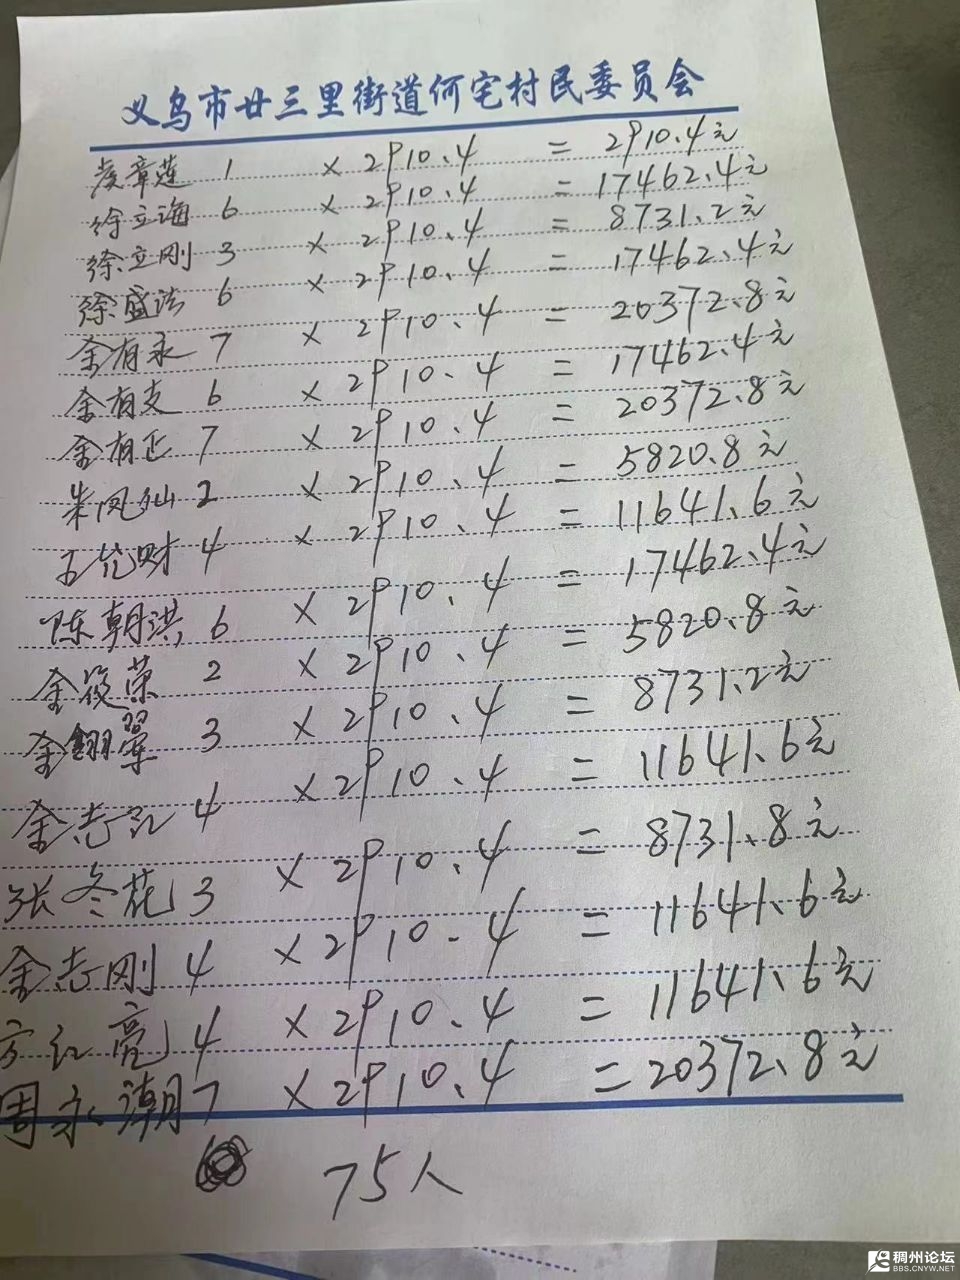 义乌市廿三里街道何宅村民委员会
章莲 1 × 2910.4 = 2910.4元
徐立海 6 × 2910.4 = 17462.4元
徐立刚 3 × 2910.4 = 8731.2元
徐盛法 6 × 2910.4 = 17462.4元
金有永 7 × 2910.4 = 20372.8元
金有支 6 × 2910.4 = 17462.4元
金有正 7 × 2910.4 = 20372.8元
朱凤仙 2 × 2910.4 = 5820.8元
财 4 × 2910.4 = 11641.6元
陈朝洪 6 × 2910.4 = 17462.4元
金筱荣 2 × 2910.4 = 5820.8元
金翠 3 × 2910.4 = 8731.2元
金志红 4 × 2910.4 = 11641.6元
张冬花 3 × 2910.4 = 8731.8元
金志刚 4 × 2910.4 = 11641.6元
方红亮 4 × 2910.4 = 11641.6元
周永潮 7 × 2910.4 = 20372.8元
75人
稠州论坛
BBS.CNYW.NET